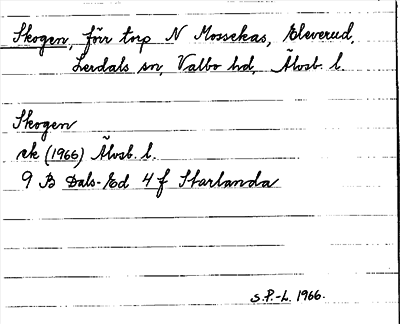 Skogen, förr torp N Mossekas, Bleverud,
Lerdals sn, Valbo hd, Älvsb. l.
Skogen
ek (1966) Älvsb. l.
9 B Dals-Ed 4 f Starlanda
S.P.-L. 1966.